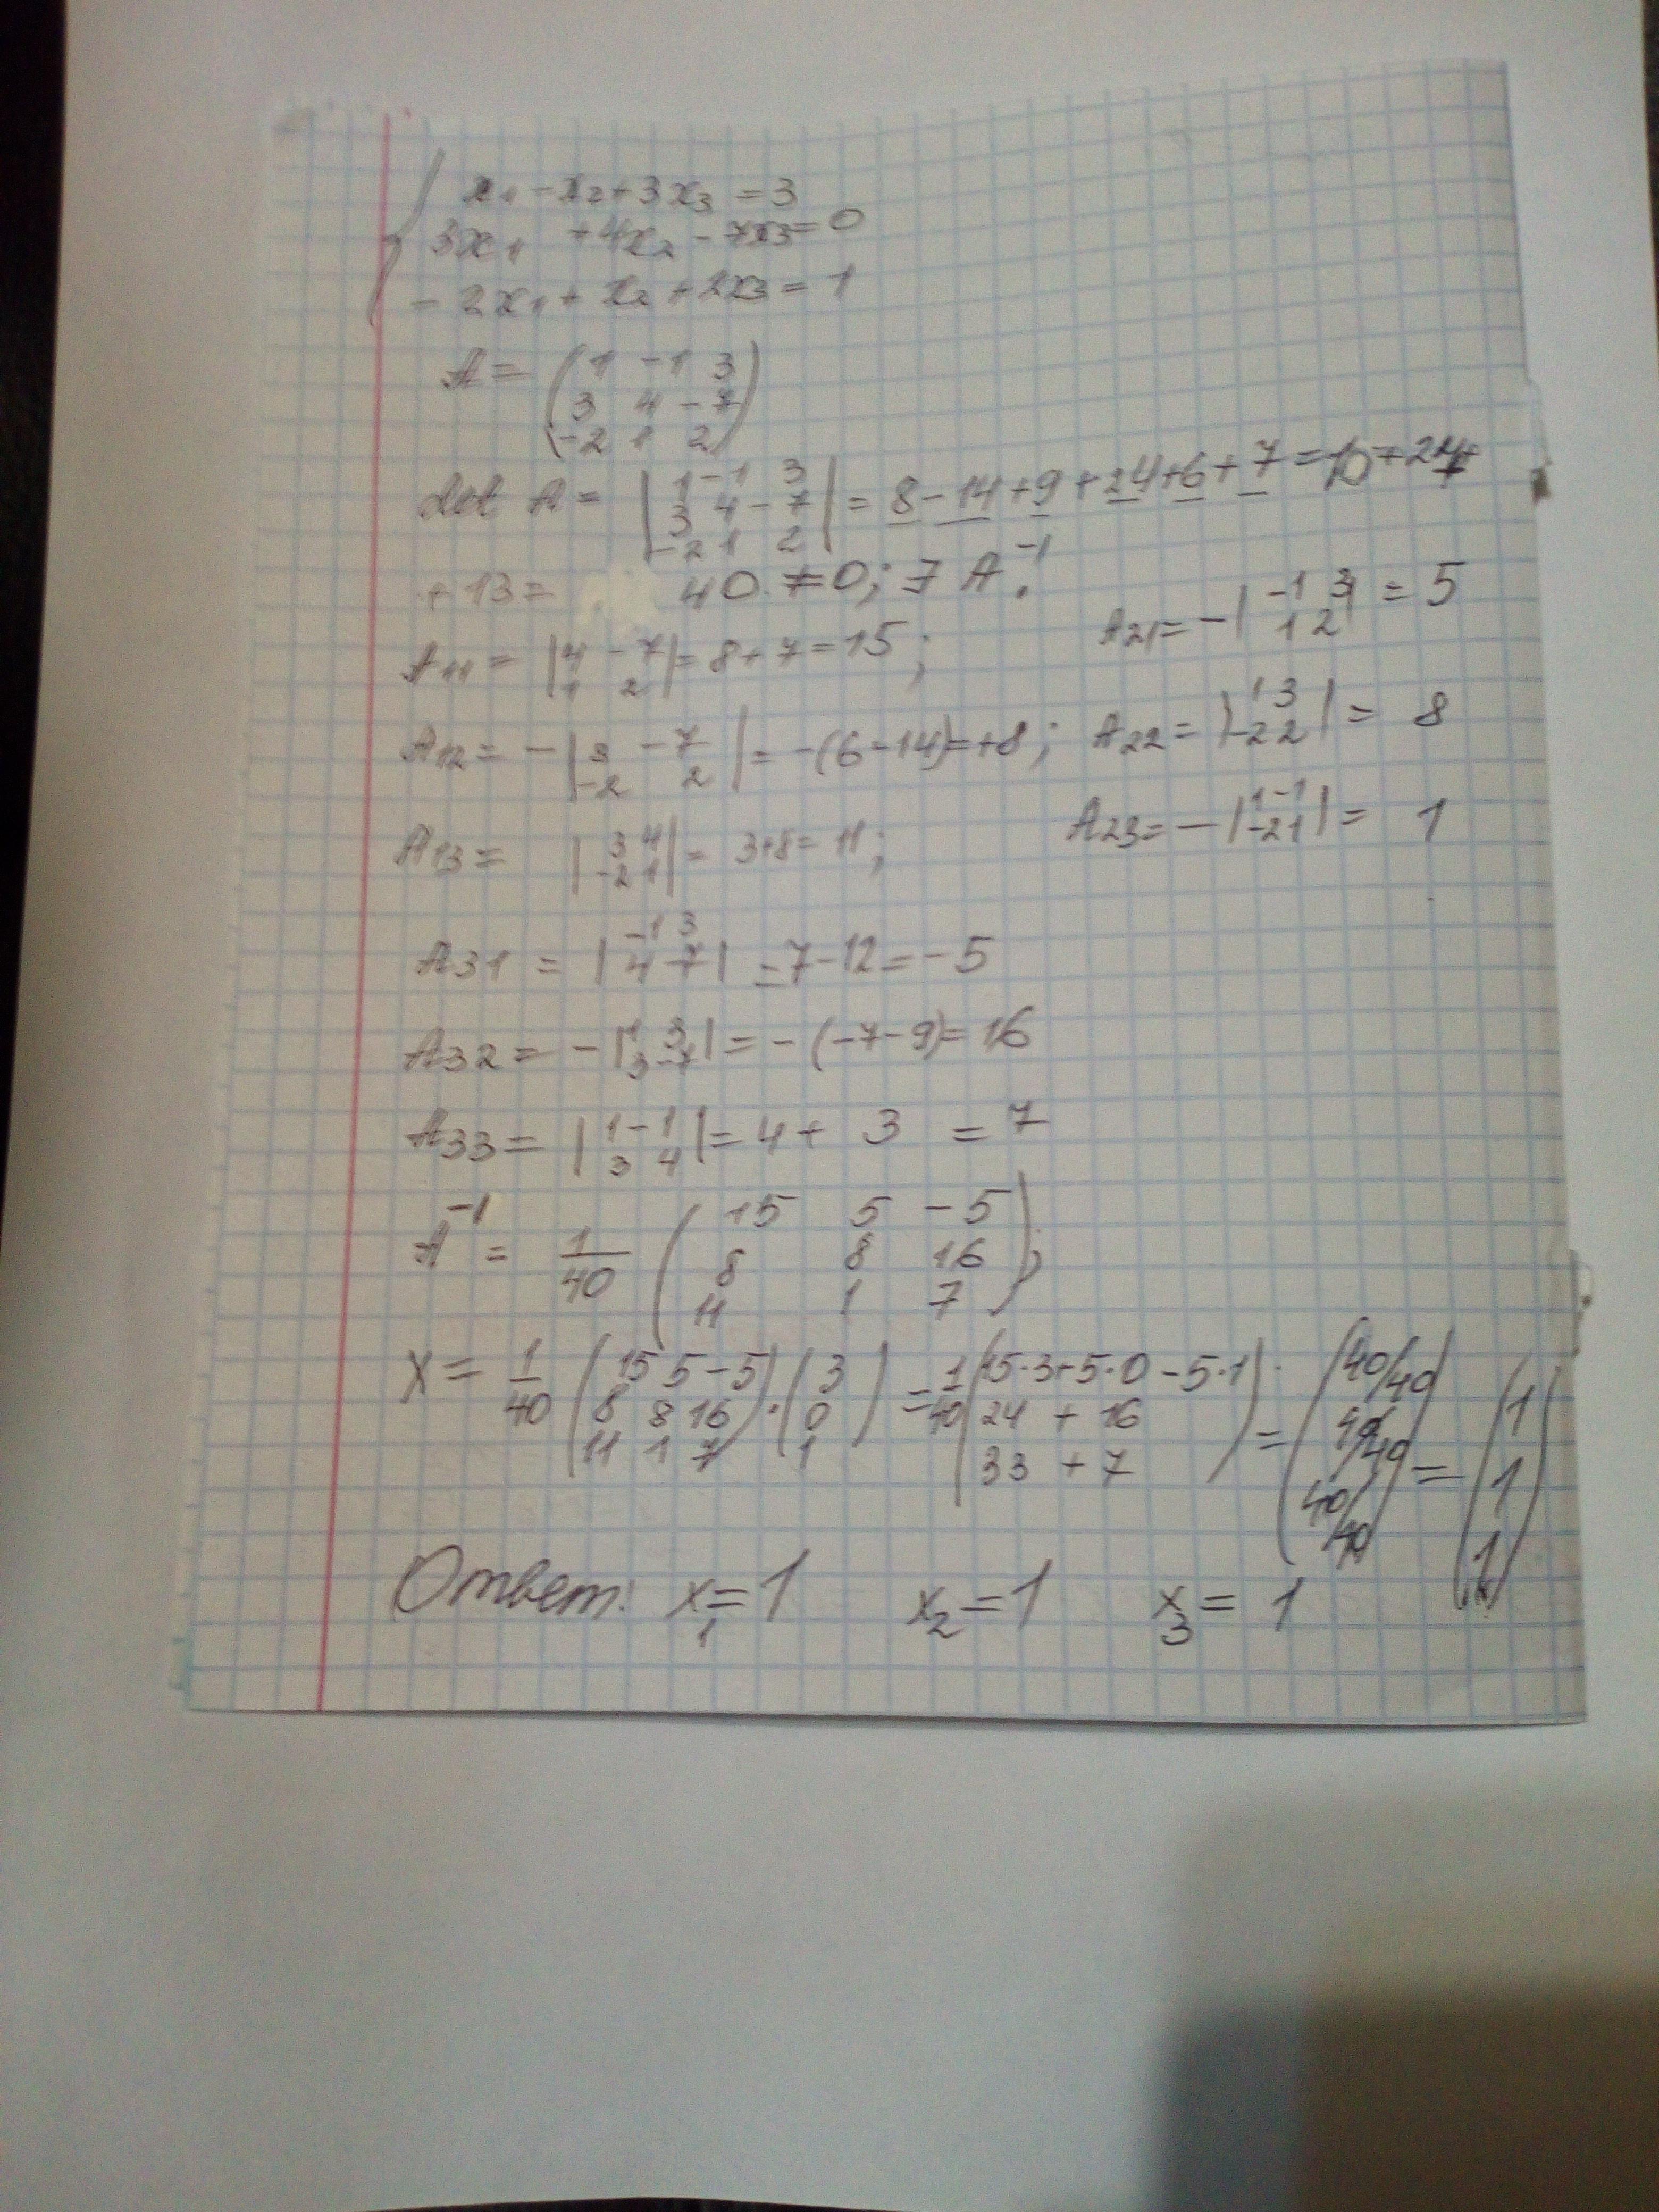 x₁ - x₂ + 3x₃ = 3
3x₁ + 4x₂ - 7x₃ = 0
- 2x₁ + x₂ + 2x₃ = 1
A = ( 1 -1 3
3 4 -7
-2 1 2 )
det A = | 1 -1 3
3 4 -7
-2 1 2 | = 8 - 14 + 9 + 24 + 6 + 7 = 10 + 24 +
+ 13 = 40 ≠ 0; ∃ A⁻¹.
A₁₁ = | 4 -7
1 2 | = 8 + 7 = 15;
A₂₁ = - | -1 3
1 2 | = 5
A₁₂ = - | 3 -7
-2 2 | = -(6 - 14) = +8;
A₂₂ = | 1 3
-2 2 | = 8
A₁₃ = | 3 4
-2 1 | = 3 + 8 = 11;
A₂₃ = - | 1 -1
-2 1 | = 1
A₃₁ = | -1 3
4 -7 | = 7 - 12 = -5
A₃₂ = - | 1 3
3 -7 | = - (-7 - 9) = 16
A₃₃ = | 1 -1
3 4 | = 4 + 3 = 7
A⁻¹ = 1/40 ( 15 5 -5
8 8 16
11 1 7 );
X = 1/40 ( 15 5 -5
8 8 16
11 1 7 ) · ( 3
0
1 ) = 1/40 ( 15·3 + 5·0 - 5·1
24 + 16
33 + 7 ) = ( 40/40
40/40
40/40 ) = ( 1
1
1 )
Ответ: x₁ = 1 x₂ = 1 x₃ = 1